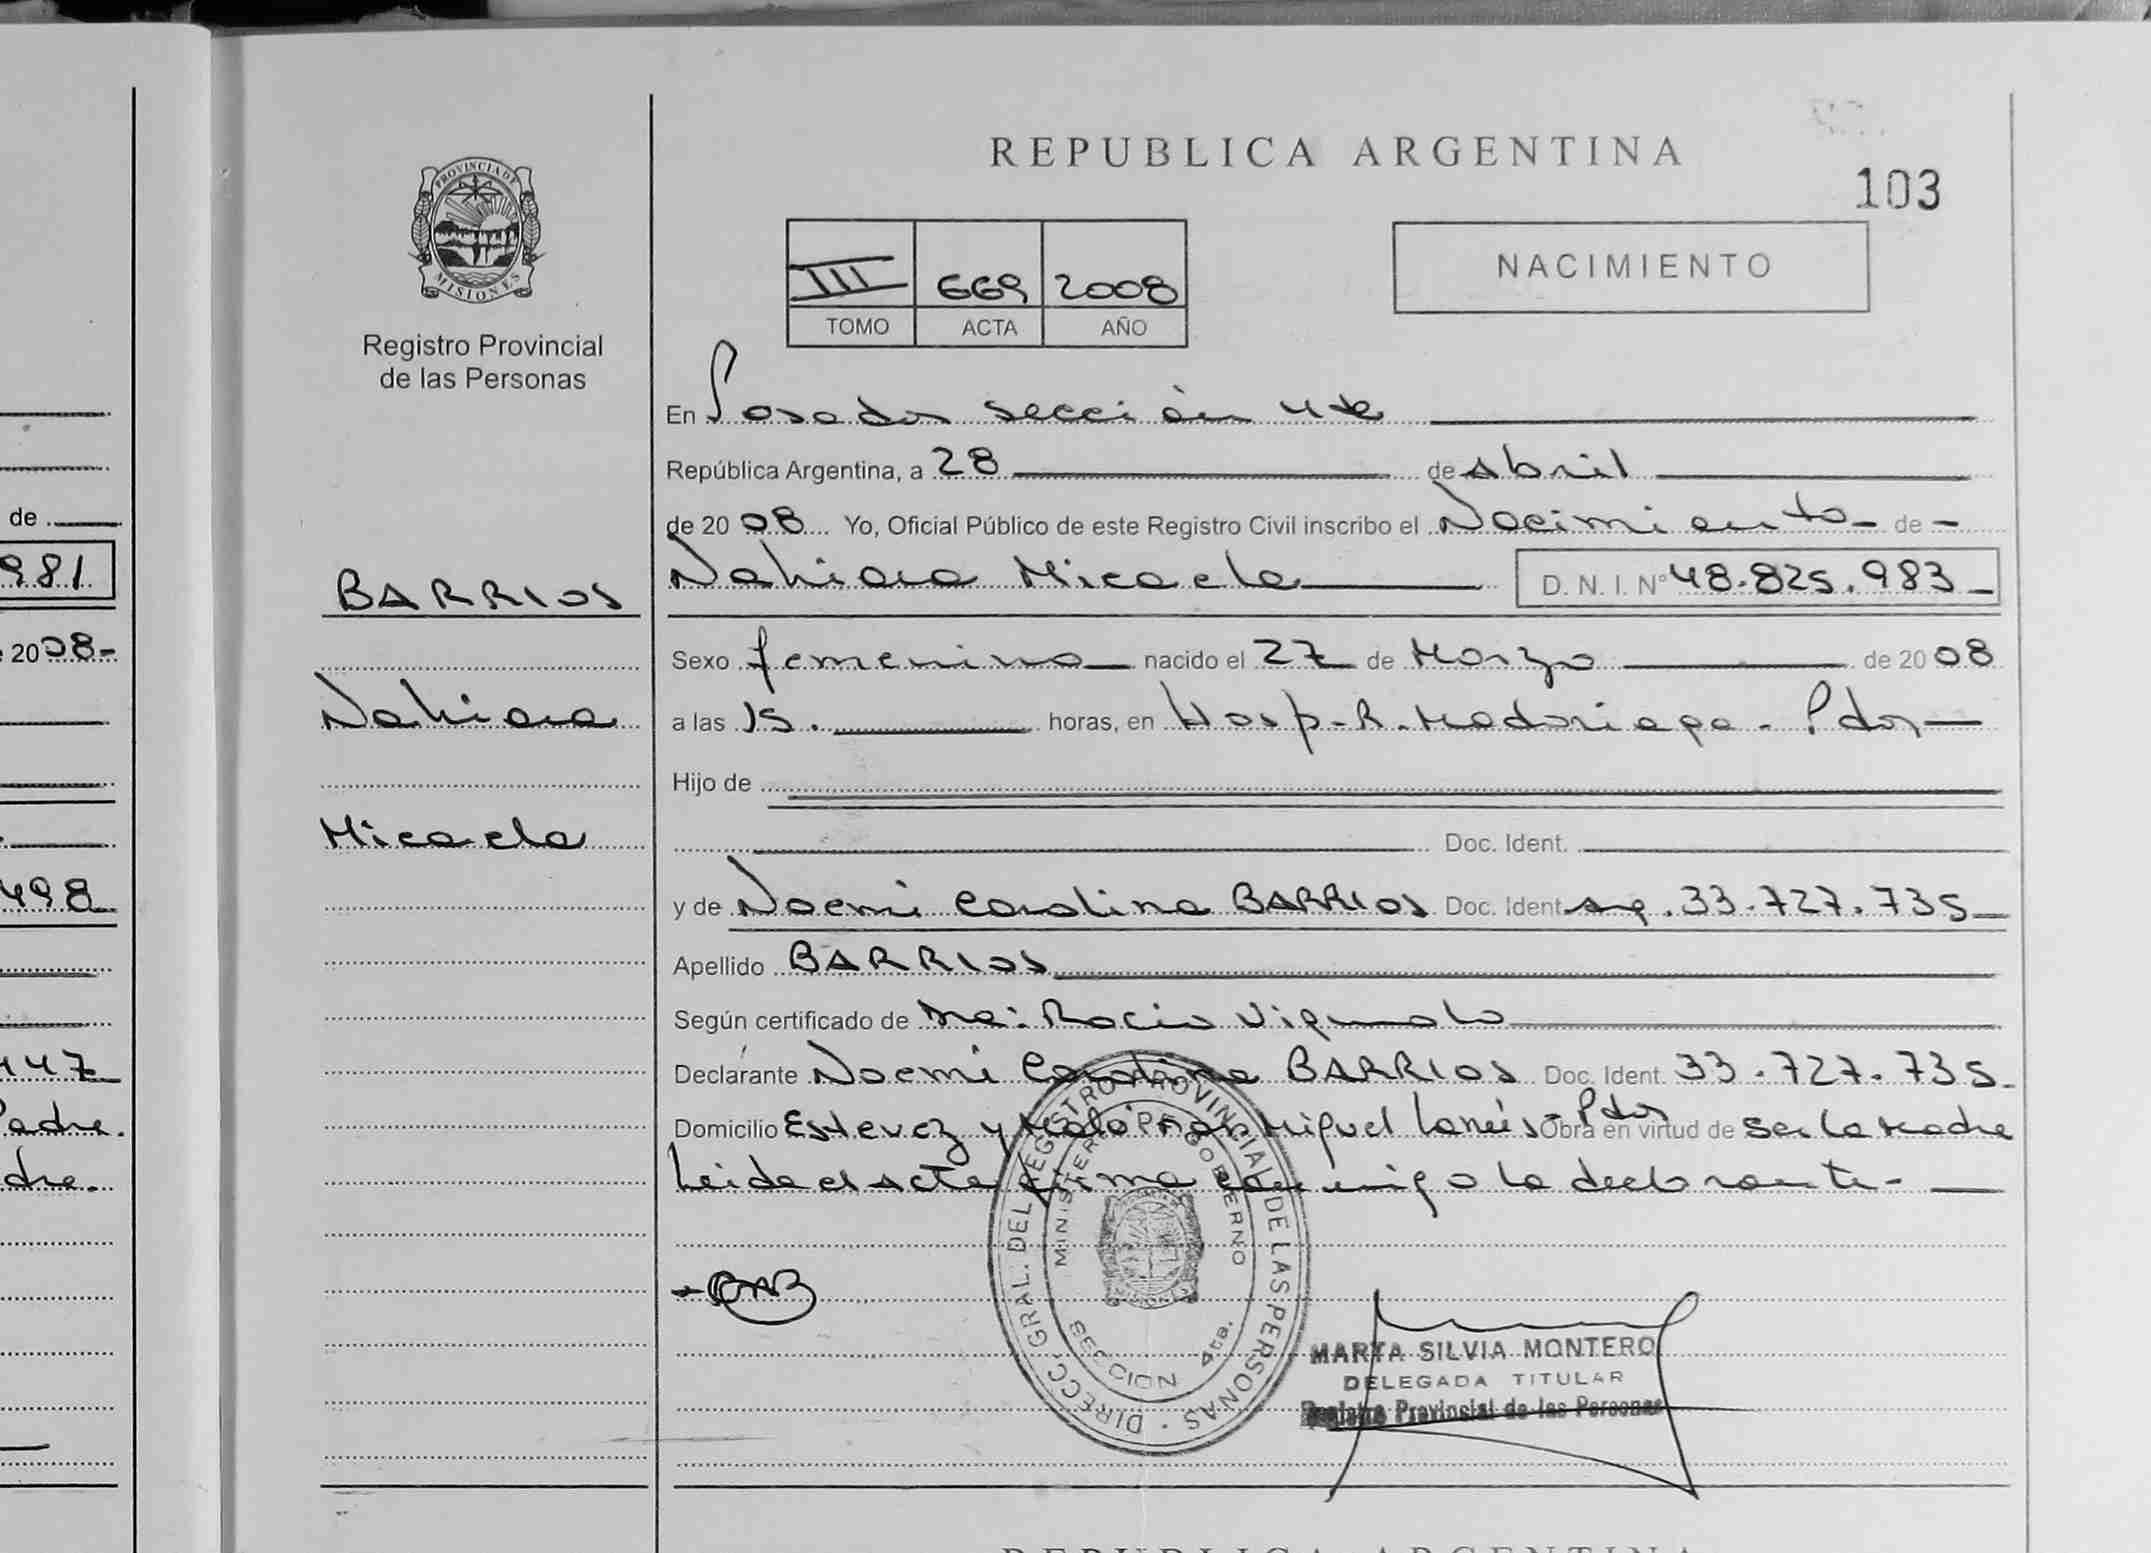 REPUBLICA ARGENTINA
103
PROVINCIA DE
MISIONES
Registro Provincial
de las Personas
III 669 2008
TOMO ACTA AÑO
NACIMIENTO
En Posadas sección 4ta
República Argentina, a 28 de Abril
de 2008 Yo, Oficial Público de este Registro Civil inscribo el Nacimiento de
Nahiara Micaela D. N. I. Nº 48.825.983
BARRIOS
Nahiara
Micaela
Sexo femenino nacido el 27 de Marzo de 2008
a las 15. horas, en Hosp. R. Madariaga - Pdas
Hijo de
Doc. Ident.
y de Noemi Carolina BARRIOS Doc. Ident. Arg. 33.727.735
Apellido BARRIOS
Según certificado de Ma: Rocio
Declarante Noemi Carolina BARRIOS Doc. Ident. 33.727.735
Domicilio Estevez y Miguel Lanús - Pdas Obra en virtud de ser la Madre
Leida el acta firma conmigo la declarante -
DIRECC. GRAL. DEL REGISTRO PROVINCIAL DE LAS PERSONAS
MINISTERIO DE GOBIERNO
SECCION 4ta.
MARTA SILVIA MONTERO
DELEGADA TITULAR
Registro Provincial de las Personas
de
981
2008-
498
447
Padre.
dre.
REPUBLICA ARGENTINA